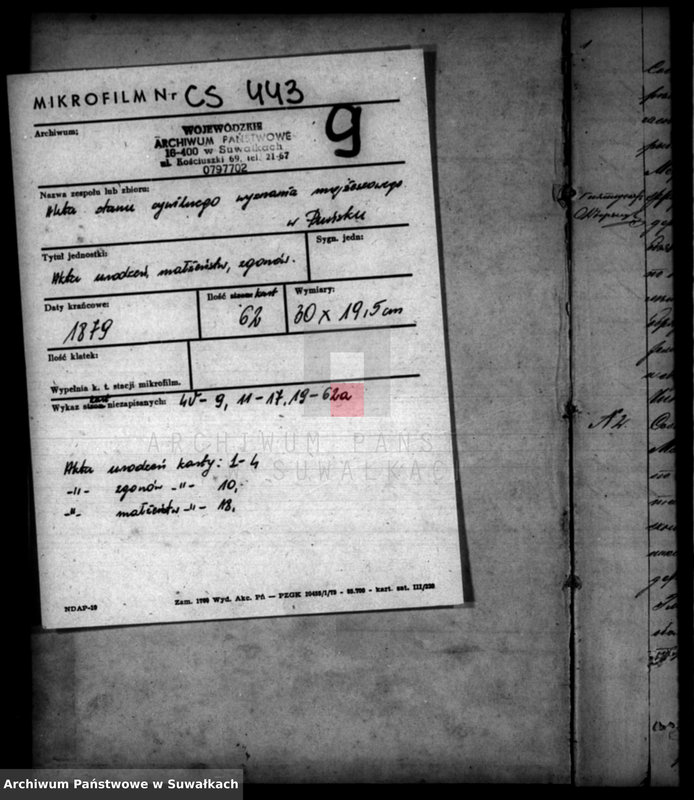 MIKROFILM Nr CS 443
9
Archiwum:
WOJEWÓDZKIE
ARCHIWUM PAŃSTWOWE
16-400 w Suwałkach
ul. Kościuszki 69, tel. 21-67
0797702
Nazwa zespołu lub zbioru:
Akta stanu cywilnego wyznania mojżeszowego
w Puńsku
Tytuł jednostki:
Akta urodzeń, małżeństw, zgonów.
Sygn. jedn:
Daty krańcowe:
1879
Ilość stron kart
62
Wymiary:
30 x 19,5 cm
Ilość klatek:
Wypełnia k. t. stacji mikrofilm.
Wykaz stron kart niezapisanych: 4v - 9, 11 - 17, 19 - 62a
Akta urodzeń karty: 1-4
-"- zgonów -"- 10,
-"- małżeństw -"- 18,
NDAP-19
Zam. 1700 Wyd. Akc. Pń — PZGK
kart. sat. III/220
ARCHIWUM PAŃS
SUWAŁKAC
1
N 2.
Archiwum Państwowe w Suwałkach